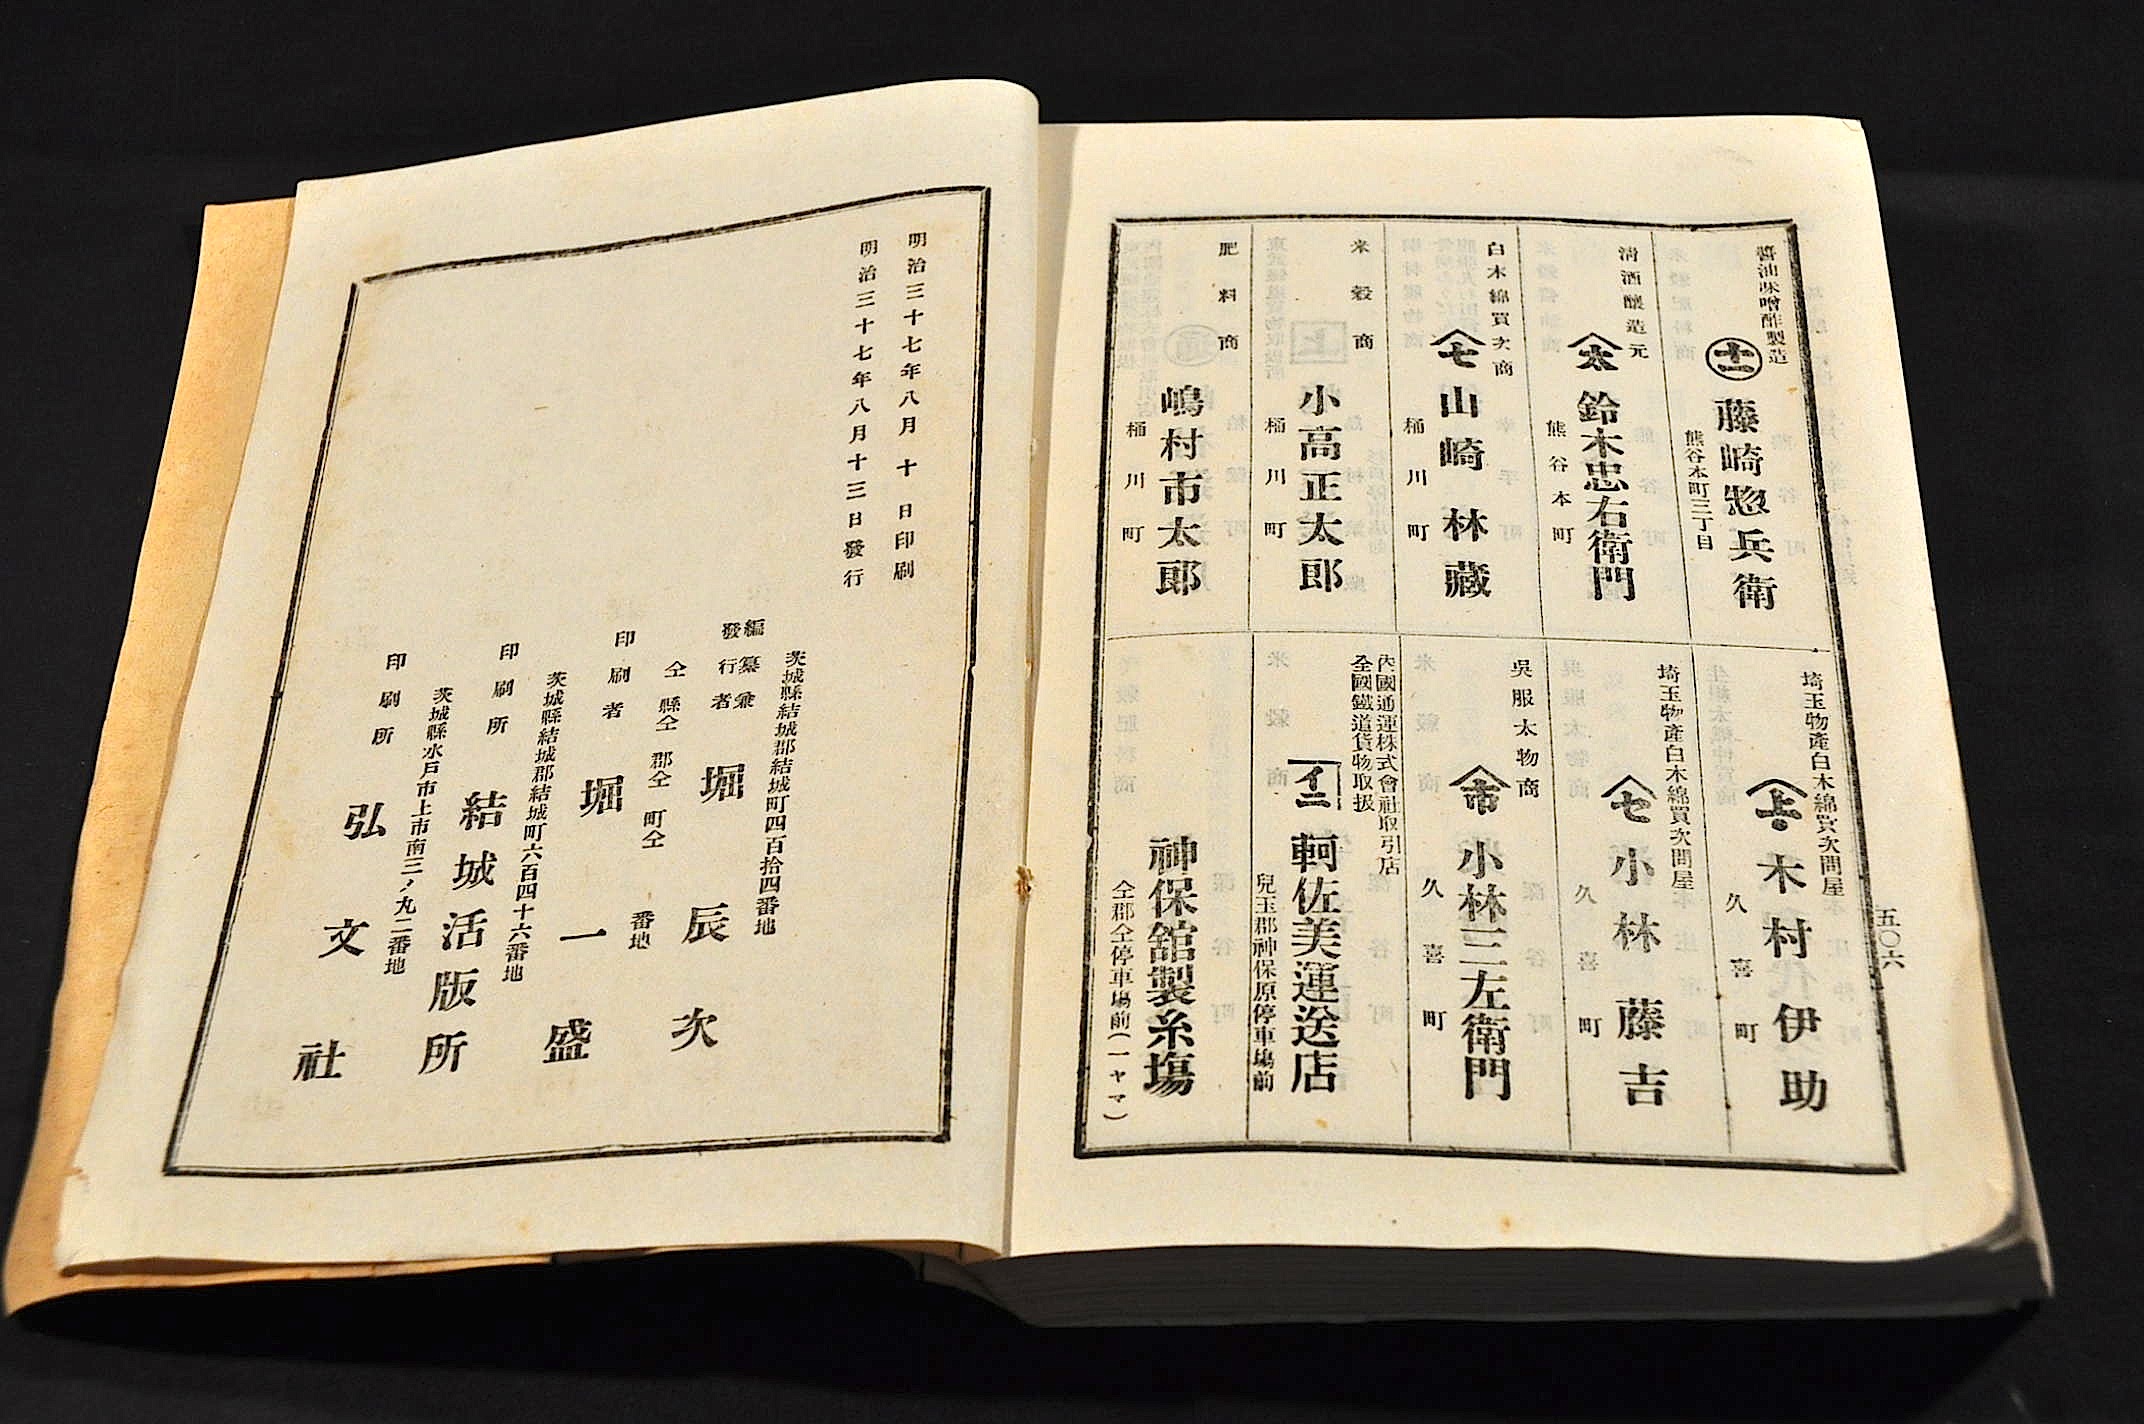 五〇六
醬油味噌酢製造
十一
藤崎惣兵衛
熊谷本町三丁目
清酒釀造元
太
鈴木忠右衛門
熊谷本町
白木綿買次商
七
山崎林藏
桶川町
米穀商
小高正太郎
桶川町
肥料商
嶋村市太郎
桶川町
埼玉物產白木綿買次問屋
上
木村伊助
久喜町
埼玉物產白木綿買次問屋
七
小林藤吉
久喜町
吳服太物商
市
小林三左衛門
久喜町
內國通運株式會社取引店
全國鐵道貨物取扱
イ二
軻佐美運送店
兒玉郡神保原停車塲前
神保舘製糸塲
仝郡仝停車塲前(一ヤマ)
明治三十七年八月十日印刷
明治三十七年八月十三日發行
茨城縣結城郡結城町四百拾四番地
編纂兼
發行者
堀辰次
仝縣仝郡仝町仝番地
印刷者
堀一盛
茨城縣結城郡結城町六百四十六番地
印刷所
結城活版所
茨城縣水戶市上市南三ノ丸二番地
印刷所
弘文社